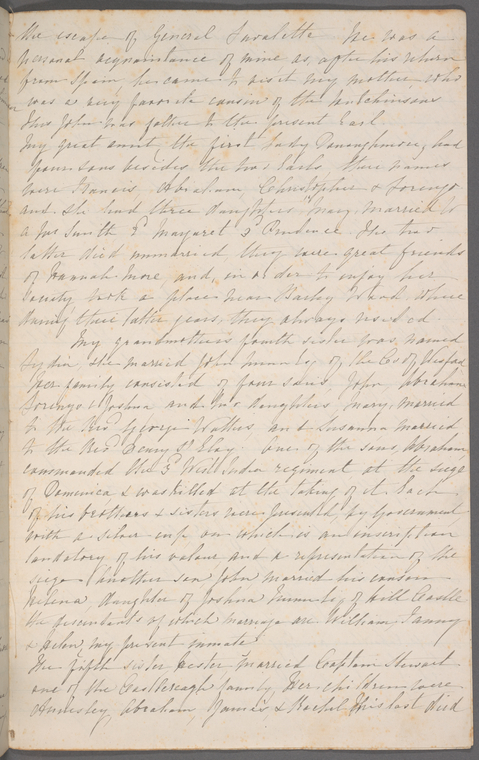 the escape of General Lavalette He was a
personal acquaintance of mine as, after his return
from Spain he came to visit my mother who
was a very favorite cousin of the Hutchinsons
This John was father to the present Earl.
My great aunt, the first Lady Donoughmore, had
four sons besides the two Earls, there names
were Francis, Abraham, Christopher & Lorenzo
and she had three daughters Mary, married to
a Mr Smith 2d Margaret 3d Prudence The two
latter died unmarried, they were great friends
of Hannah More, and in order to enjoy her
society took a place near Barley Wood, where
during their latter years, they always resided.
My grandmother's fourth sister was named
Lydia, she married John of the Co of Wexford
Her family consisted of four sons, John, Abraham
Lorenzo & Joshua and two daughters, Mary, married
to the Revd George Walker and Susanna married
to the Revd Henry St One of the sons, Abraham,
commanded the 3d West India regiment at the siege
of Domenica & was killed at the taking of it. Each
of his brothers & sisters were presented, by Government
with a silver cup on which is an inscription
laudatory of his valour, and a representation of the
siege. Another son John married his cousin
Helena, daughter of Joshua of Hill Castle
the descendants of which marriage are William, Fanny
& Helen my present inmate.
The fifth sister Hester married Captain Stewart
one of the Castlereagh family, Her children were
Annesley, Abraham, James, & Rachel This last died